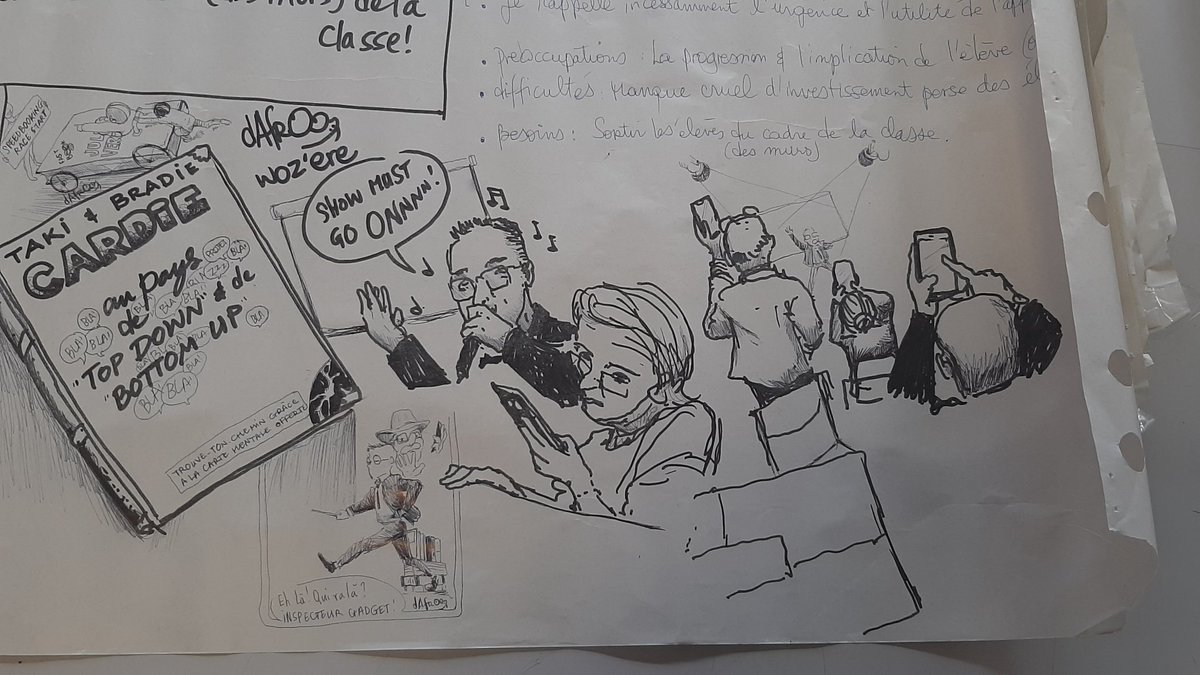 (des murs) de la
classe!
. Je rappelle incessamment l'urgence et l'utilité de l'app
. préoccupations : La progression & l'implication de l'élève
. difficultés : Manque cruel d'investissement perso des é
. besoins : Sortir les élèves du cadre de la classe.
(des murs)
SPEEDBOOKING
RACE START
dAfrOO3
dAfrOO3
woz'ere
SHOW MUST
GO ONNNN!
TAKI & BRADIE
CARDIE
au pays
de
"TOP DOWN" & de
"BOTTOM UP"
BLA!
BLA!
BLA!
BLA!
PROJET
ZZZ
BLA!
BLA!
BLA!
TROUVE-TON CHEMIN GRÂCE
À LA CARTE MENTALE OFFERTE!
Eh là! Qui va là?
INSPECTEUR GADGET!
dAfrOO3